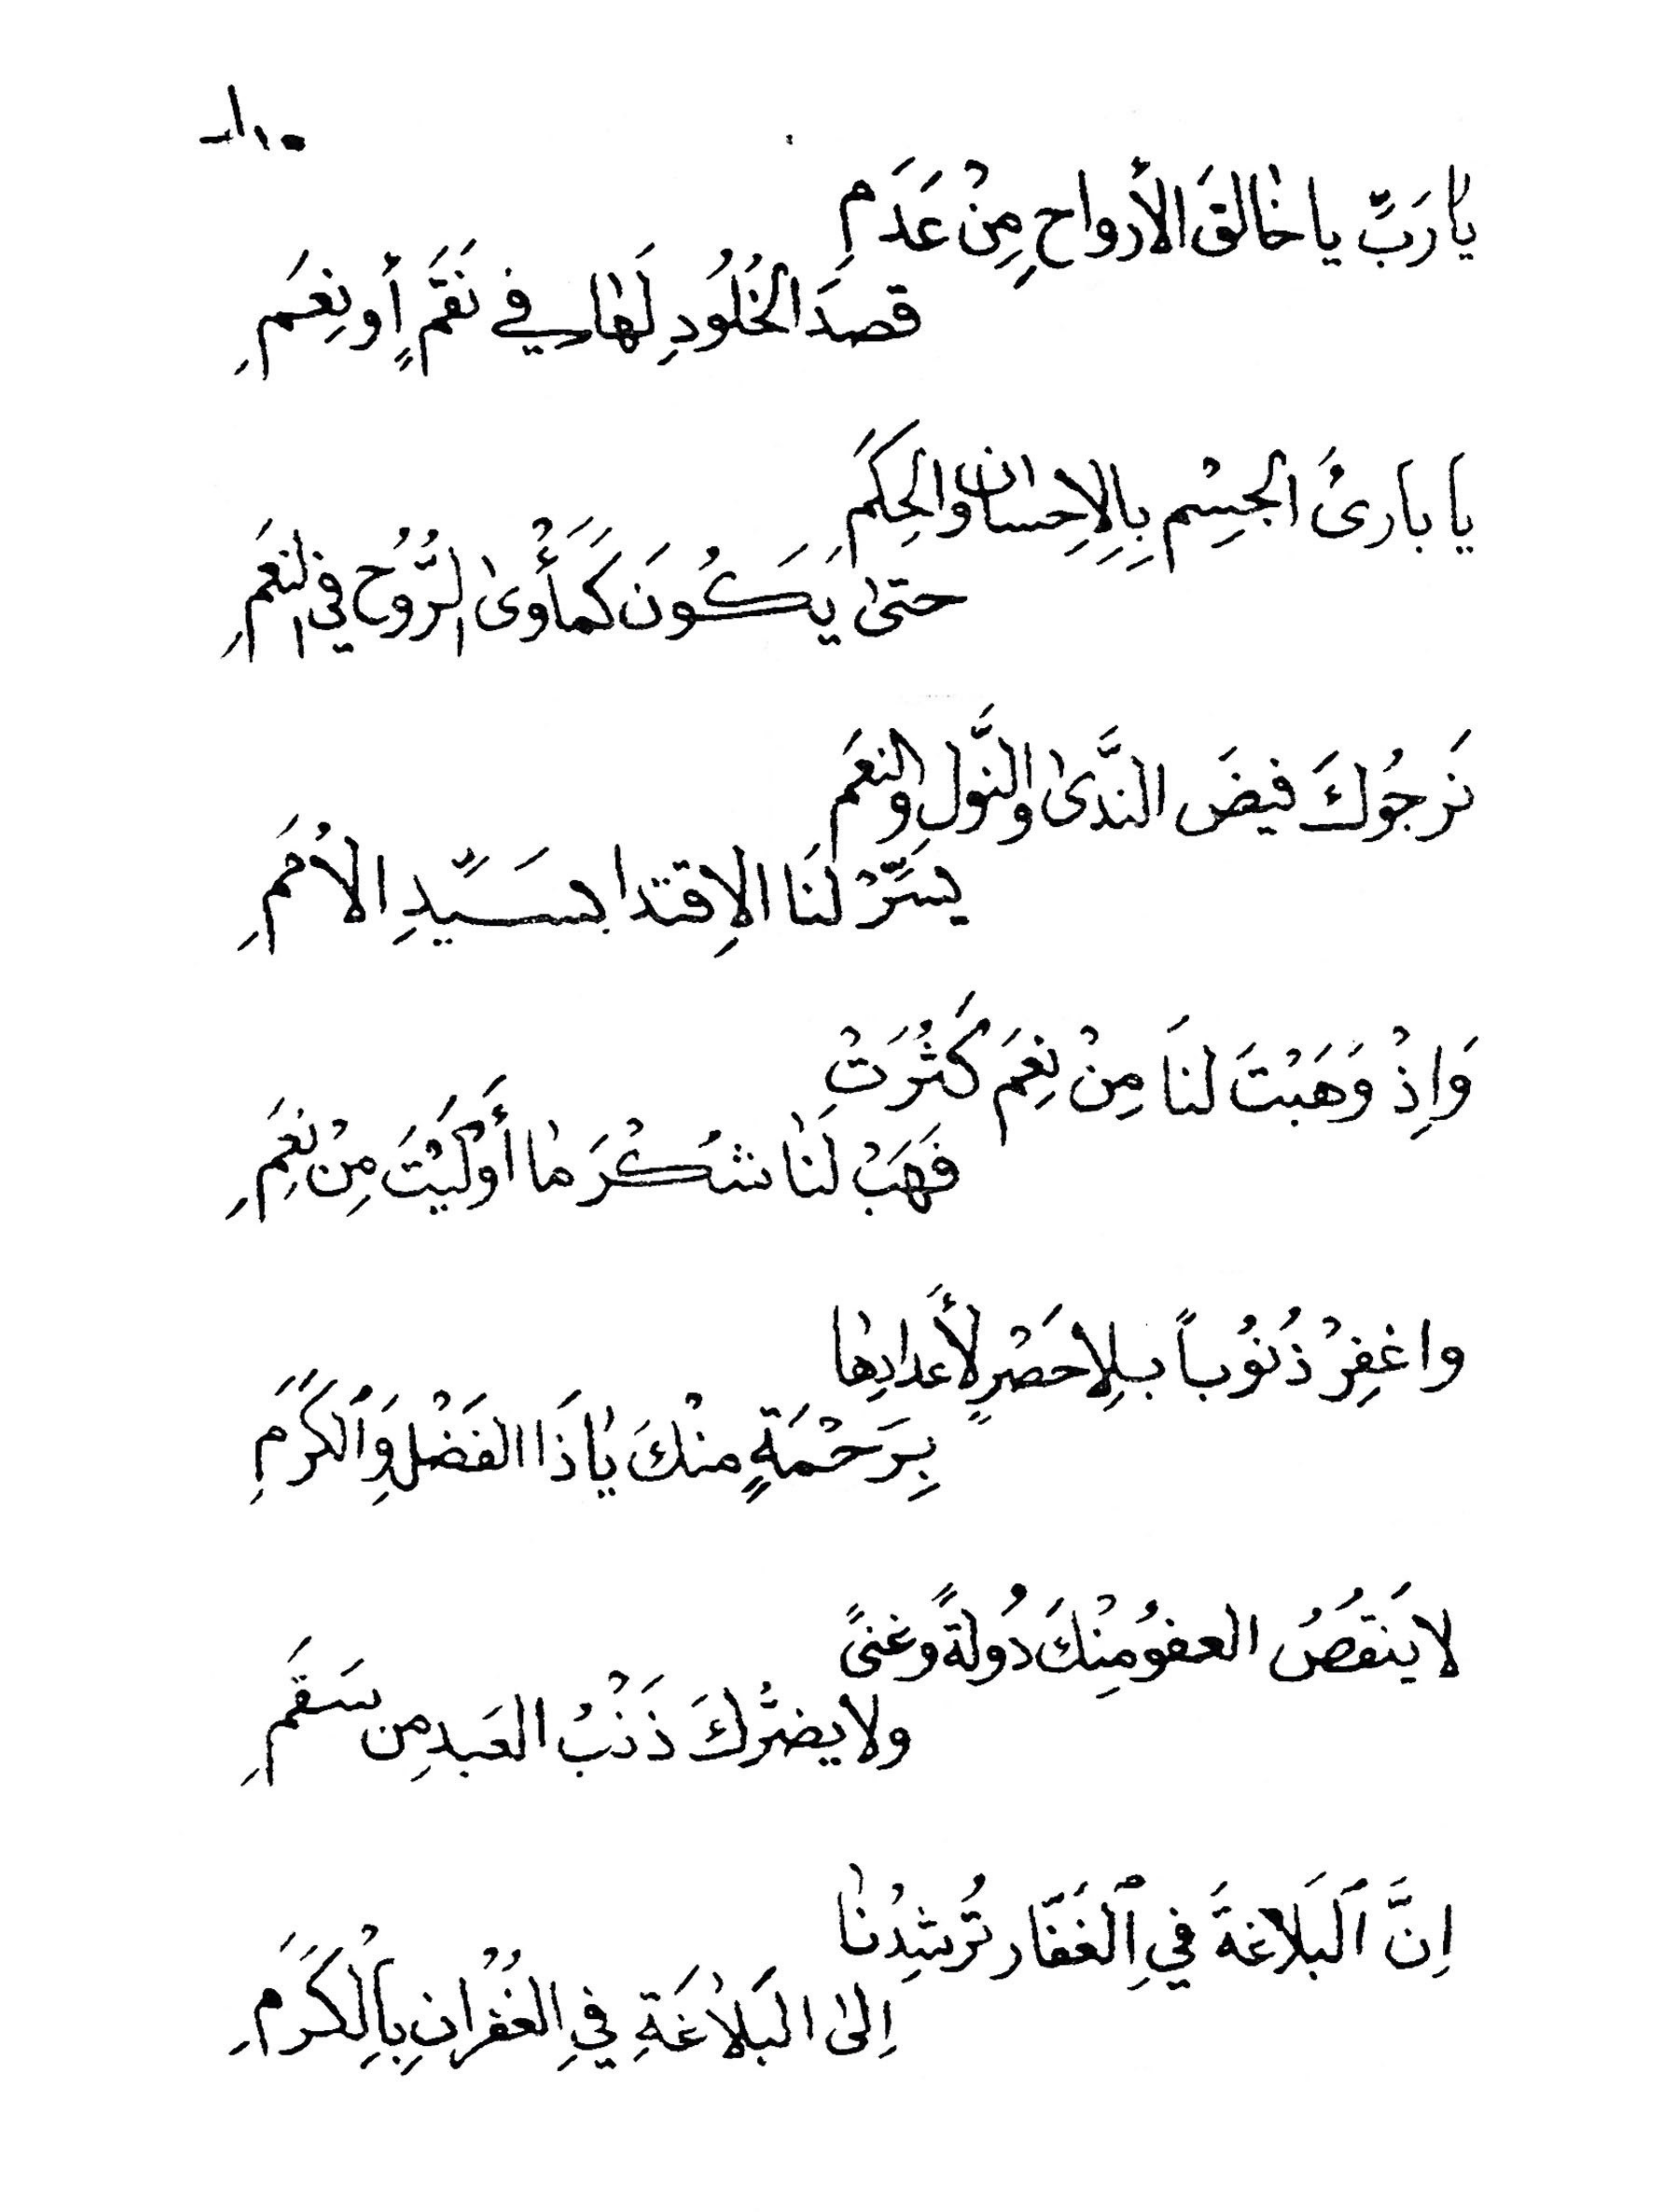 يٰا رَبِّ يا خٰالقَ الأرواحِ مِنْ عَدَمِ
قصدَ الخُلُودِ لَهٰا في نَقَمٍ أو نِعَمِ
يا بارئَ الجسِْم بِالِاحِسان والحِكَمِ
حتىٰ يَكُونَ كَمَأْوىٰ الرُّوُح في النعَمِ
نَرجُوكَ فيضَ النَّدىٰ والنَّولِ والنعَم
يسَّرْ لَنَا الاِقتدا بسَيَّدِ الأُمَمِ
وَاِذْ وَهَبْتَ لنَا مِنْ نِعَمَ كَثُرَتْ
فَهَبْ لَنٰا شكْرَ مٰا أَوْلَيْتَ مِنْ نِعَمِ
واغفِرْ ذُنُوُباً بلِاحَصْرٍ لأَعدادِهٰا
بِرَحْمَةٍ منْكَ يٰاذَا الفَضْلِ وَالكَرَمِ
لا يَنقصُ العفوُ مِنْكَ دُولةً وغنىً
ولا يضرُّكَ ذَنْبُ العَبدِ من سَقَمِ
اِنَّ ٱلبَلَاغةَ فيِ ٱلغَفَّار تُرشِدُنٰا
اِلىٰ البَلاٰغَةِ فيِ الغُفْرٰانِ بِالِْكَرَمِ